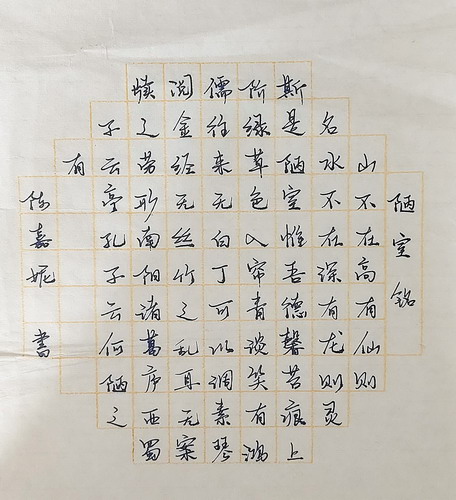 陋室铭
山不在高有仙则
名水不在深有龙则灵
斯是陋室惟吾德馨苔痕上
阶绿草色入帘青谈笑有鸿
儒往来无白丁可以调素琴
阅金经无丝竹之乱耳无案
牍之劳形南阳诸葛庐西蜀
子云亭孔子云何陋之
有
陈嘉妮 书